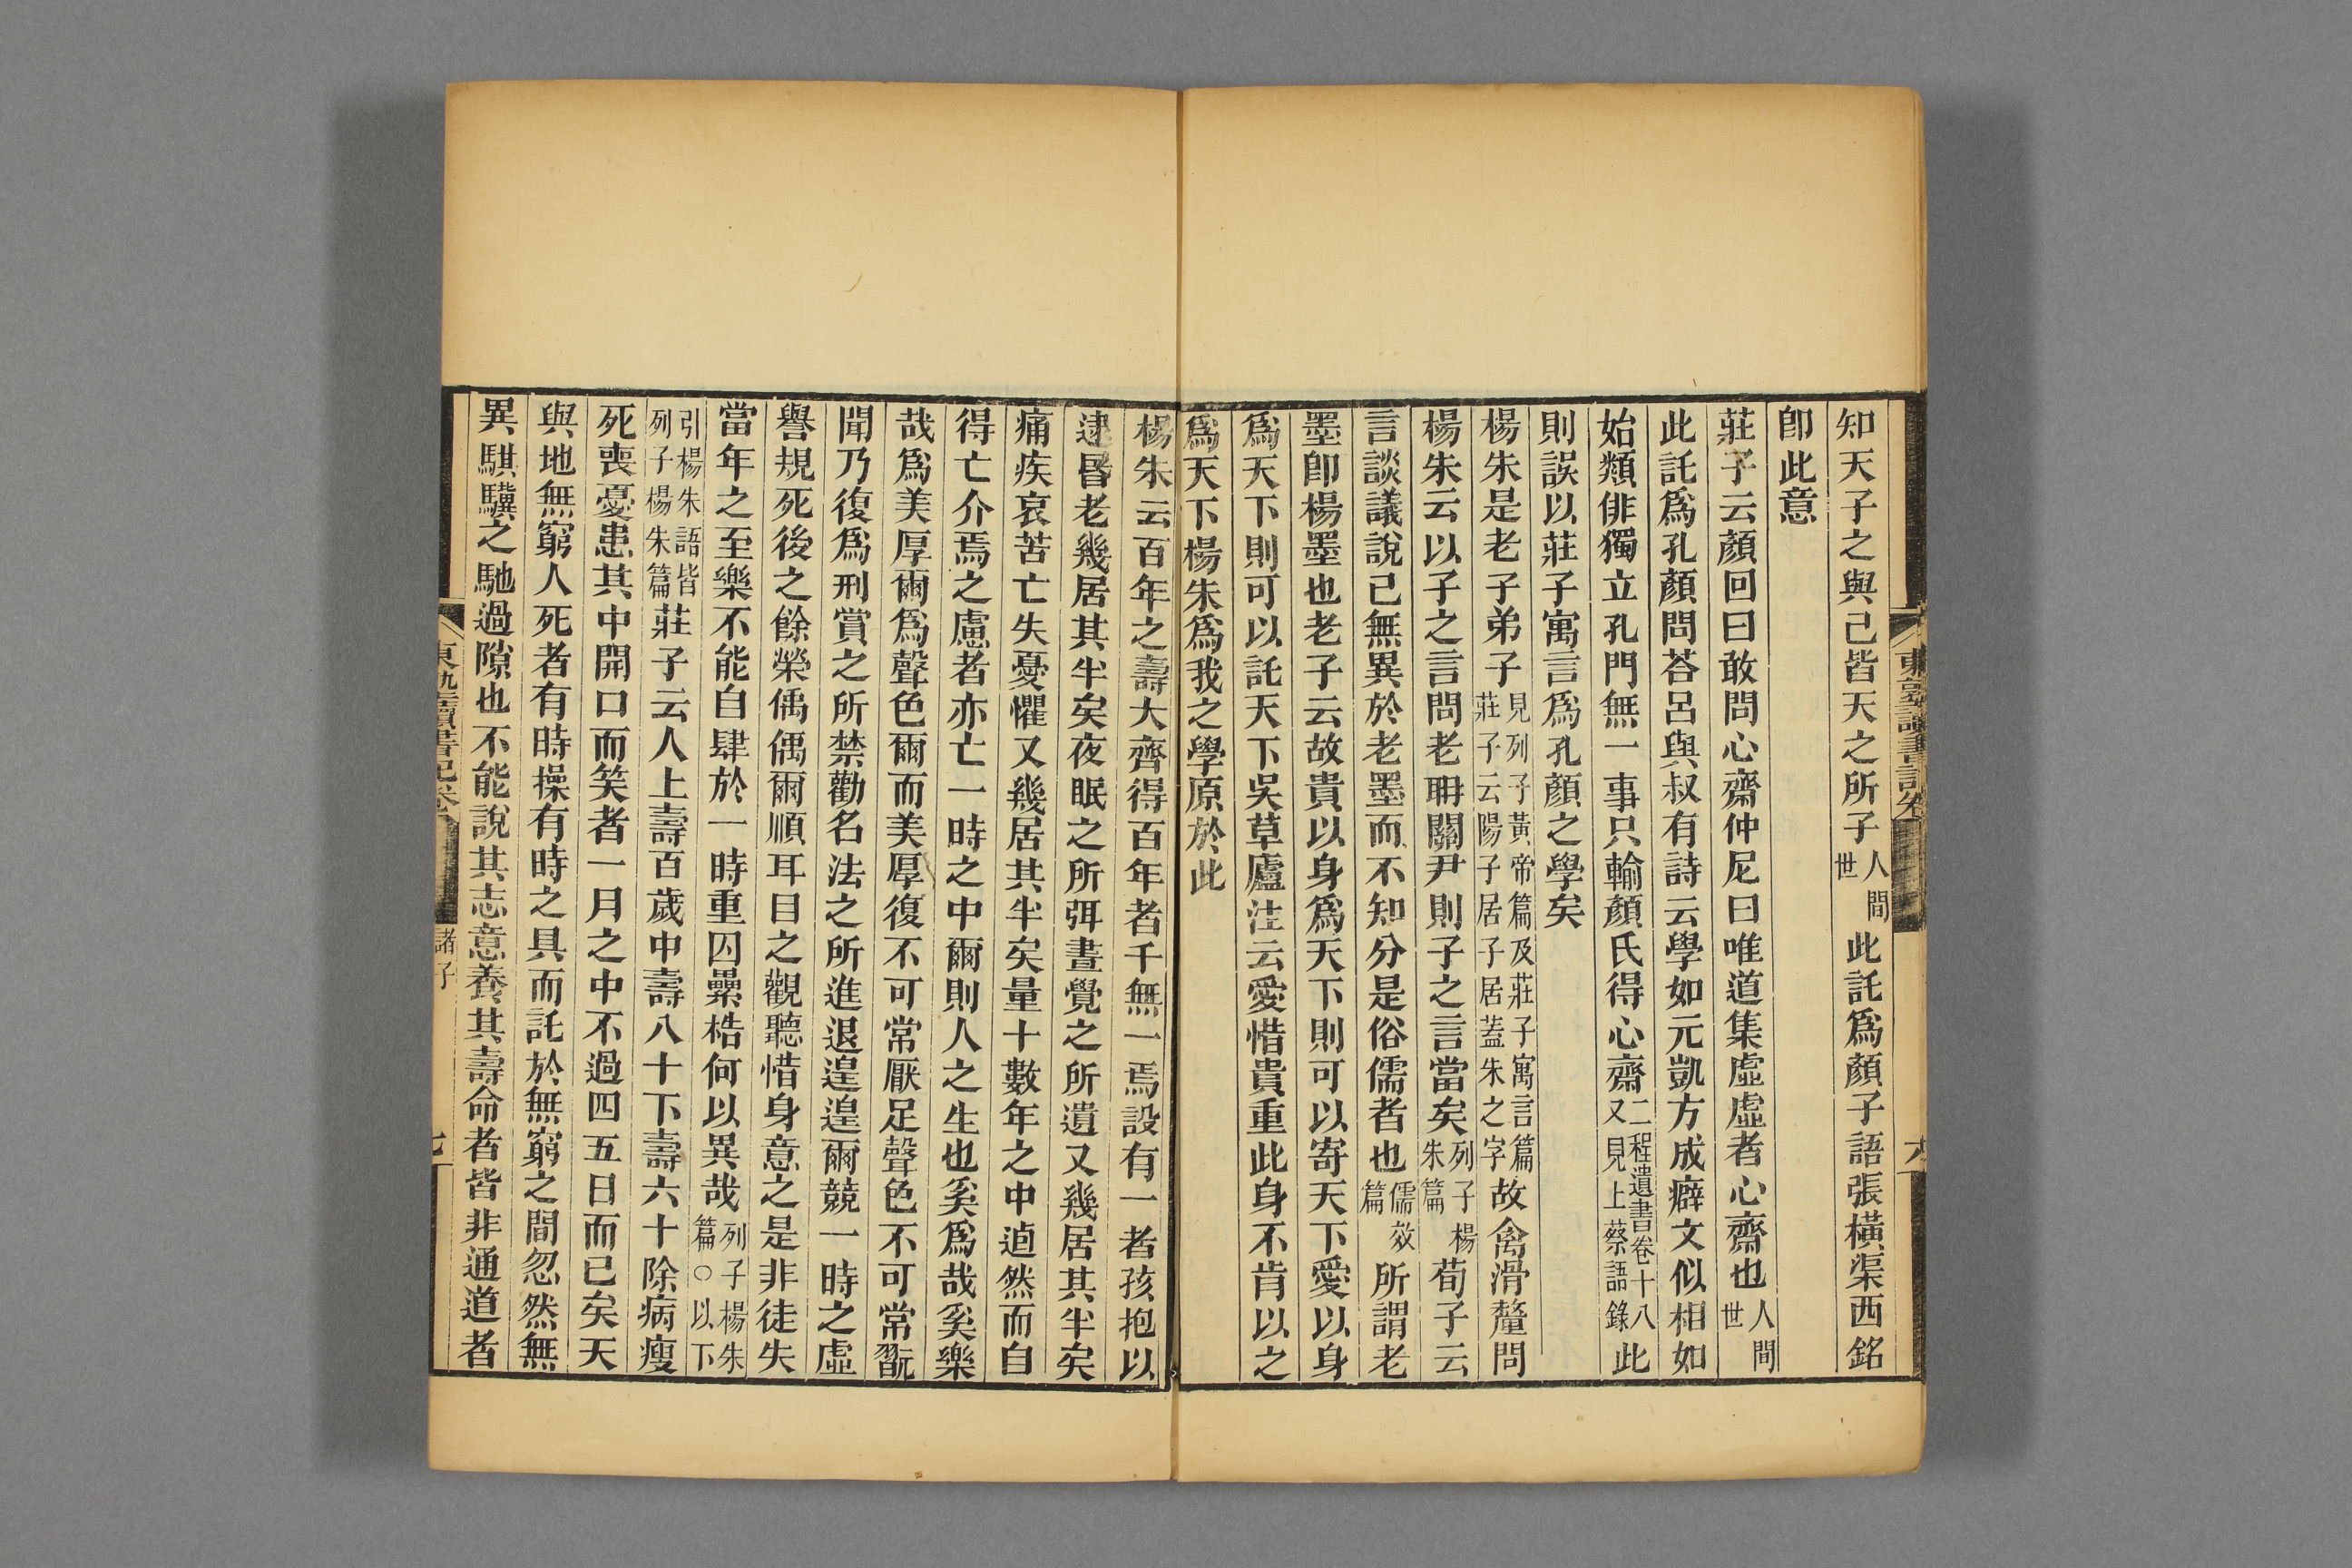 知天子之與己皆天之所子人間世此託爲顏子語張橫渠西銘
卽此意
莊子云顏回曰敢問心齋仲尼曰唯道集虛虛者心齋也人間世
此託爲孔顏問荅呂與叔有詩云學如元凱方成癖文似相如
始類俳獨立孔門無一事只輸顏氏得心齋二程遺書卷十八又見上蔡語錄此
則誤以莊子寓言爲孔顏之學矣
楊朱是老子弟子見列子黃帝篇及莊子寓言篇莊子云陽子居子居蓋朱之字故禽滑釐問
楊朱云以子之言問老聃關尹則子之言當矣列子楊朱篇荀子云
言談議說已無異於老墨而不知分是俗儒者也儒效篇所謂老
墨卽楊墨也老子云故貴以身爲天下則可以寄天下愛以身
爲天下則可以託天下吳草廬注云愛惜貴重此身不肯以之
爲天下楊朱爲我之學原於此
楊朱云百年之壽大齊得百年者千無一焉設有一者孩抱以
逮昬老幾居其半矣夜眠之所弭晝覺之所遺又幾居其半矣
痛疾哀苦亡失憂懼又幾居其半矣量十數年之中逌然而自
得亡介焉之慮者亦亡一時之中爾則人之生也奚爲哉奚樂
哉爲美厚爾爲聲色爾而美厚復不可常厭足聲色不可常翫
聞乃復爲刑賞之所禁勸名法之所進退遑遑爾競一時之虛
譽規死後之餘榮偊偊爾順耳目之觀聽惜身意之是非徒失
當年之至樂不能自肆於一時重囚纍梏何以異哉列子楊朱篇○以下
引楊朱語皆列子楊朱篇莊子云人上壽百歲中壽八十下壽六十除病瘦
死喪憂患其中開口而笑者一月之中不過四五日而已矣天
與地無窮人死者有時操有時之具而託於無窮之間忽然無
異騏驥之馳過隙也不能說其志意養其壽命者皆非通道者
東塾讀書記卷
諸子
七